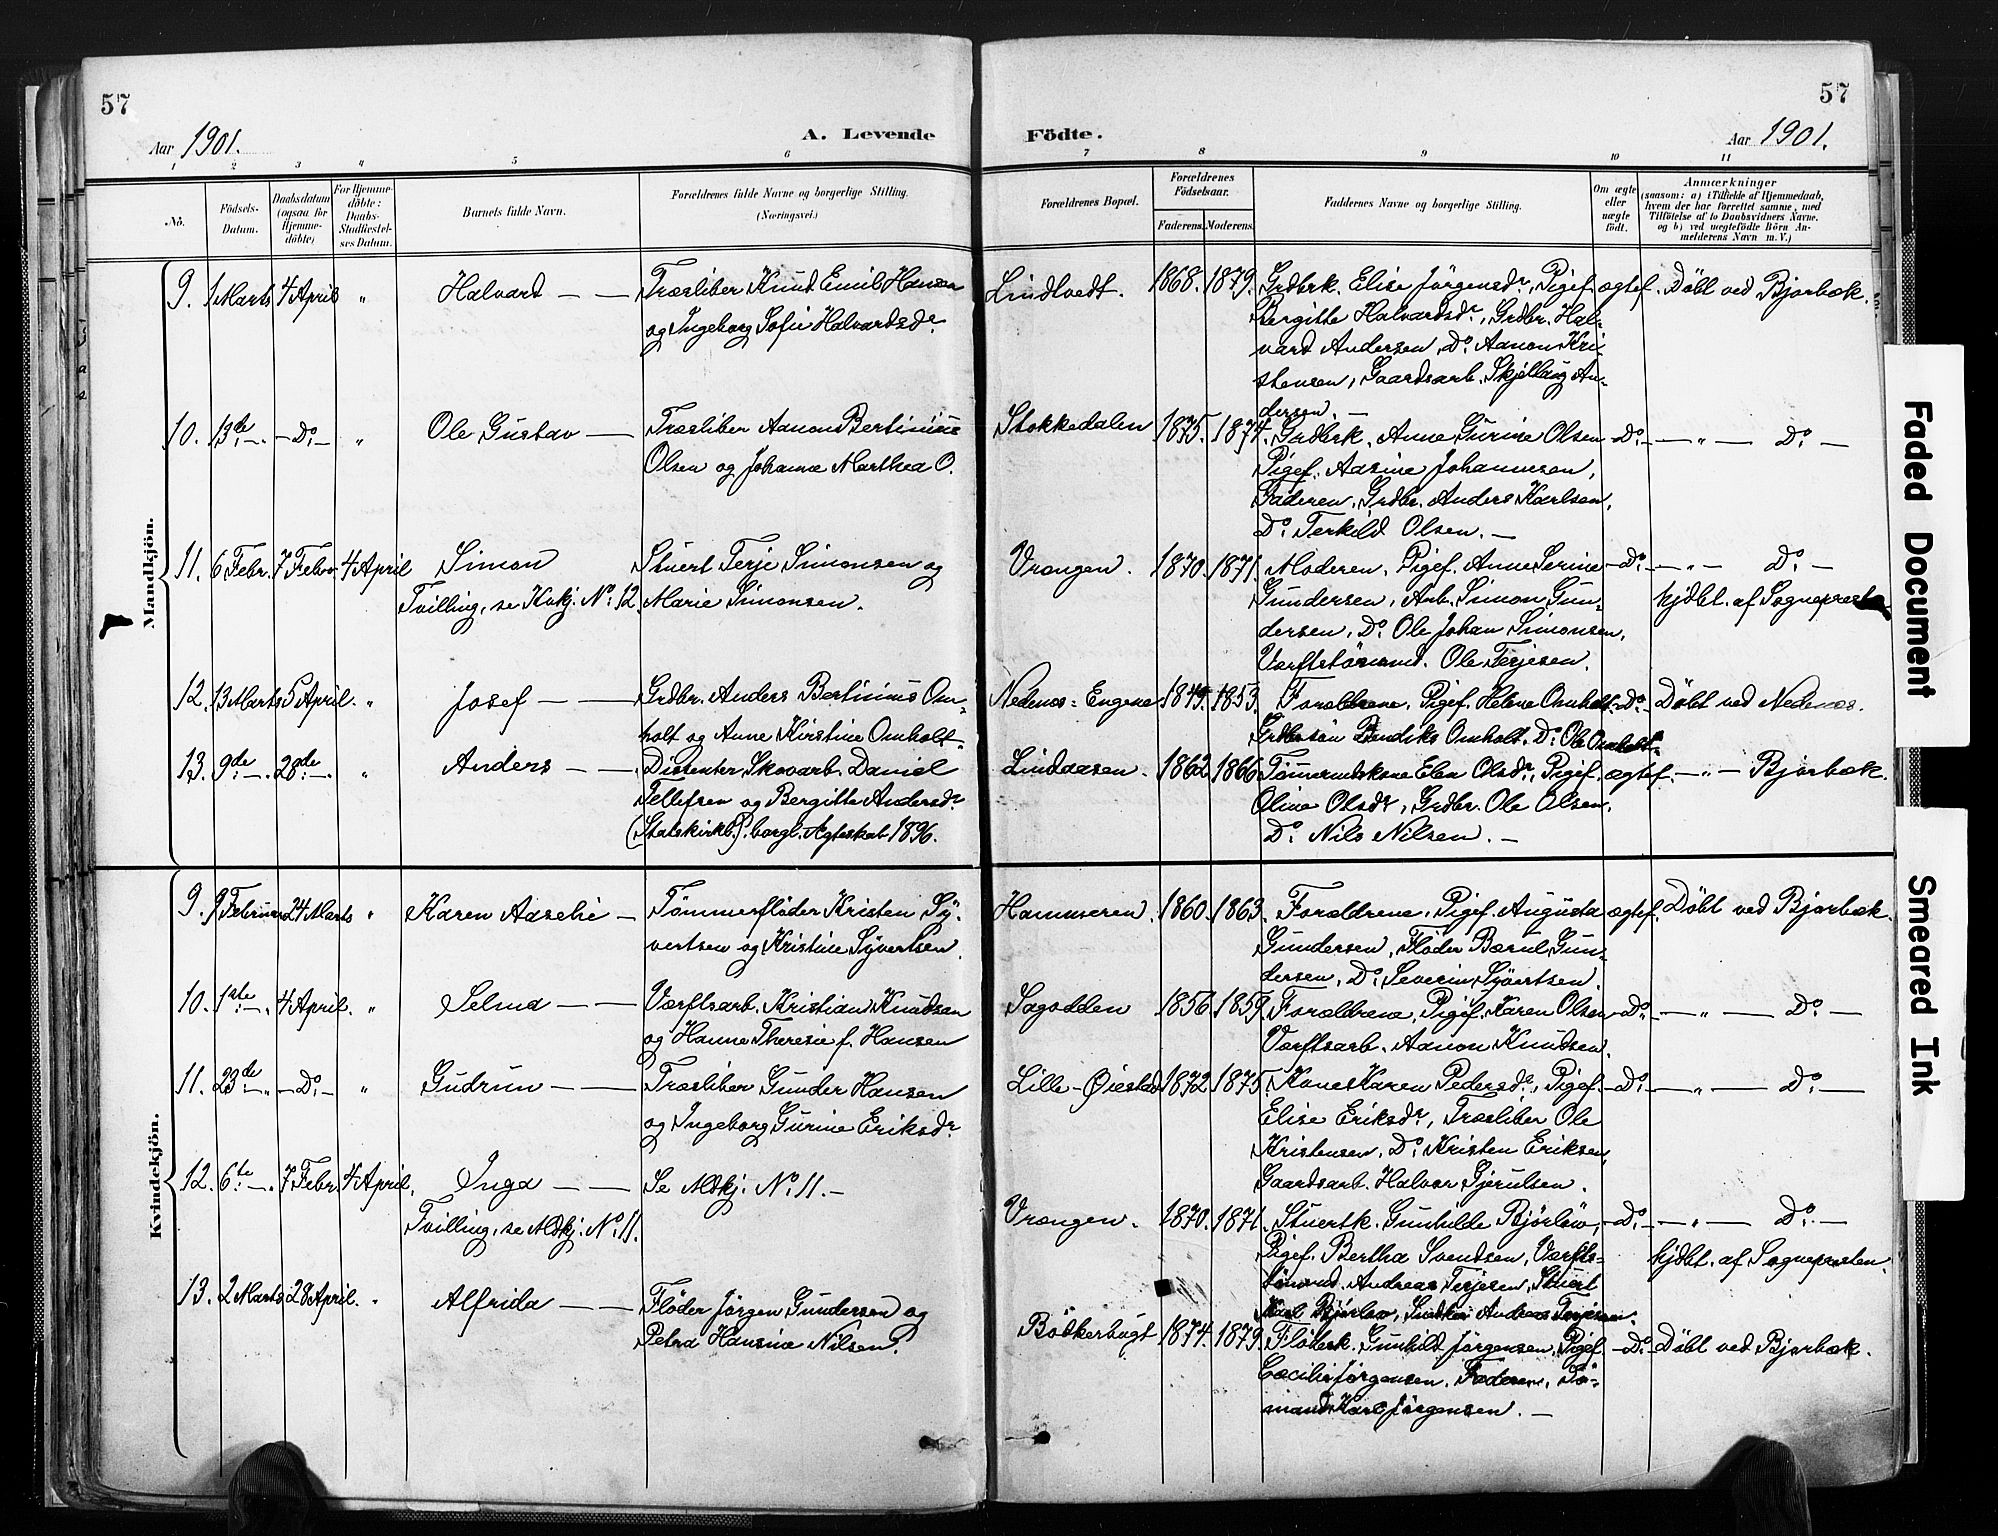 57
57
Aar 1901.
A. Levende
Födte.
Aar 1901.
1 2 3 4 5 6 7 8 9 10 11
No.
Födsels-
Datum.
Daabsdatum
(ogsaa for
Hjemme-
döbte)
For Hjemme-
döbte:
Daabs-
Stadfæstel-
ses Datum.
Barnets fulde Navn.
Forældrenes fulde Navne og borgerlige Stilling.
(Næringsvei.)
Forældrenes Bopæl.
Forældrenes
Födselsaar.
Faderens. Moderens.
Faddernes Navne og borgerlige Stilling.
Om ægte
eller
uægte
födt.
Anmærkninger
(saasom: a) i Tilfælde af Hjemmedaab,
hvem der har forrettet samme, med
Tilföielse af to Daabsvidners Navne.
og b) ved uegtefödte Börn An-
melderens Navn m. V.)
Mandkjön.
9. 1 Marts 4 April " Halvard — —
Træsliber Knud Emil Hansen
og Ingeborg Sofie Halvardsdr.
Lindtvedt. 1868. 1879.
Grdbrk. Elise Jørgensdr., Pigef.
Bergitte Halvardsdr., Grdbr. Hal-
vard Andersen, Do. Aanon Kri-
stensen, Gaardsarb. Skjellaug An-
dersen. —
ægtef. Døbt ved Bjorbæk.
10. 13de — — Do. — " Ole Gustav —
Træsliber Aanon Bertinius
Olsen og Johanne Marthea O.
Stokkedalen 1875. 1874.
Grdbrk. Anne Gurine Olsen
Pigef. Aasine Johannesen,
Faderen, Grdbr. Anders Karlsen,
Do. Terkild Olsen. —
— Do. — — " — Do. —
11. 6 Febr. 7 Febr. 4 April Simon
Tvilling, se Kvkj. No. 12.
Stuert Terje Simonsen og
Marie Simonsen.
Vrengen. 1870. 1871.
Moderen, Pigef. Anne Serine
Gundersen, Arb. Simon Gun-
dersen, Do. Ole Johan Simonsen,
Værftstömmd. Ole Terjesen.
— Do. — — " — Do. —
hjdbt. af Sognepresten
12. 13 Marts 5 April. " Josef — —
Grdbr. Anders Bertinius Om-
holt og Anne Kirstine Omholt
Nedenes-Engene 1849. 1853.
Forældrene, Pigef. Helene Omholt
Grdbrsön Bendiks Omholt. Do. Ole Omholt
— Do. — Døbt ved Nedenes.
13. 9de — 28de — " Anders — —
Dissenter Skovarb. Daniel
Tellefsen og Bergitte Andersdr.
(Statskirkb.) borgl. Ægteskab 1896.
Lindaasen. 1862. 1866.
Tömmmdskone Elen Olsdr., Pigef.
Oline Olsdr, Grdbr. Ole Olsen,
Do. Nils Nilsen. —
ægtef. — " — Bjorbæk.
Kvindekjön.
9. 9 Februar 24 Marts " Karen Aaselie —
Tømmerfløder Kristen Sy-
vertsen og Kristine Syvertsen.
Hammeren. 1860. 1863.
Forældrene, Pigef. Augusta
Gundersen, Fløder Bærul Gun-
dersen, Do. Severin Syvertsen.
ægtef. Døbt ved Bjorbæk.
10. 1ste — 4 April. " Selma — —
Værftsarb. Kristian Knudsen
og Hanne Theresie f. Hansen
Sagodden 1856. 1859.
Forældrene, Pigef. Karen Olsen
Værftsarb. Aanon Knudsen.
— Do. — — " — Do. —
11. 23de — — Do. — " Gudrun — —
Træsliber Gunder Hansen
og Ingeborg Gurine Eriksdr.
Lille-Øiestad 1872. 1875.
Kone Karen Pedersdr., Pigef.
Elise Eriksdr, Træsliber Ole
Kristensen, Do. Kristen Eriksen,
Gaardsarb. Halvor Gjerulsen.
— Do. — — " — Do. —
12. 6te — 7 Febr. 4 April. Inga — —
Tvilling, se Mdkj. No. 11.
Se Mdkj. No. 11. —
Vrengen. 1870. 1871.
Stuertk. Gunhilde Bjørlöv,
Pigef. Bertha Svendsen, Værfts-
tömmd. Andreas Terjesen, Stuert
Karl Bjørlöv, Andreas Terjesen.
— Do. — — " — Do. —
hjdbt. af Sognepresten.
13. 2 Marts 28 April. " Alfrida — —
Fløder Jørgen Gundersen og
Petra Hansine Nilsen.
Bödkerbugt 1874. 1879.
Fløderk. Gunhild Jørgensen, Pigef.
Cæcilie Jørgensen. Faderen, Tö-
mand Karl Jørgensen. —
— Do. — Døbt ved Bjorbæk.
Faded Document
Smeared Ink